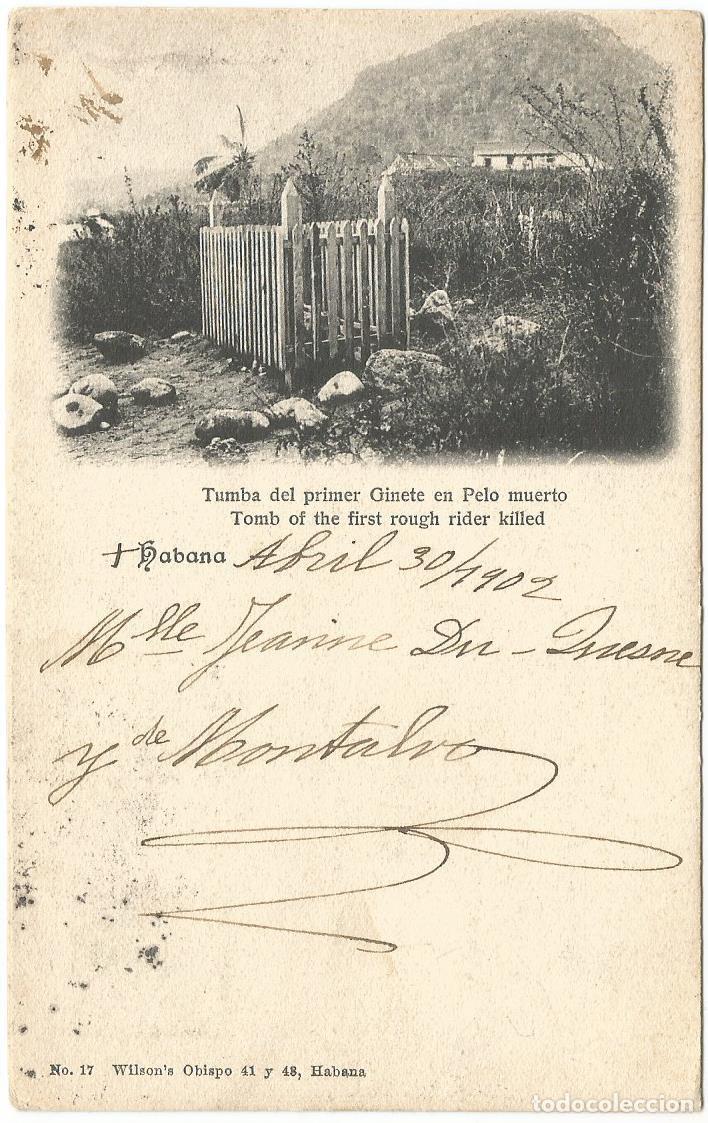 Tumba del primer Ginete en Pelo muerto
Tomb of the first rough rider killed
+ Habana Abril 30/1902
Mlle Jeanne Du-Quesne
y de Montalvo
No. 17 Wilson's Obispo 41 y 43, Habana
todocoleccion.net